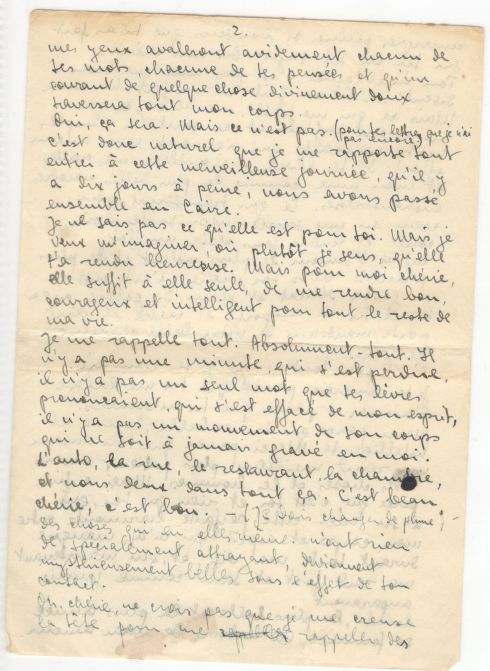 2.
mes yeux avaleront avidement chacun de
tes mots, chacune de tes pensées et qu'un
courant de quelque chose divinement doux
traversera tout mon corps.
Oui, ça sera. Mais ce n'est pas. (pour tes lettres que je n'ai
pas encore)
c'est donc naturel que je me rapporte tout
entier à cette merveilleuse journée, qu'il y
a dix jours à peine, nous avons passé
ensemble au Caire.
Je ne sais pas ce qu'elle est pour toi. Mais je
veux m'imaginer où plutôt je sens, qu'elle
t'a rendu heureuse. Mais pour moi chérie,
elle suffit à elle seule, de me rendre bon,
courageux et intelligent pour tout le reste de
ma vie.
Je me rappelle tout. Absolument tout. Il
n'y a pas une minute, qui s'est perdue,
il n'y a pas, un seul mot que tes lèvres
prononcaient, qui s'est effacé de mon esprit,
il n'y a pas un mouvement de ton corps
qui ne soit à jamais gravé en moi.
L'auto, la rue, le restaurant, la chambre,
et nous deux dans tout ça. C'est beau
chérie, c'est bon. - (Je dois changer de plume) -
des choses qui en elles-meme n'ont rien
de spécialement attrayant, deviennent
mystérieusement belles sous l'effet de ton
contact.
Oh, chérie, ne crois pas que je me creuse
la tête pour me rappeller des